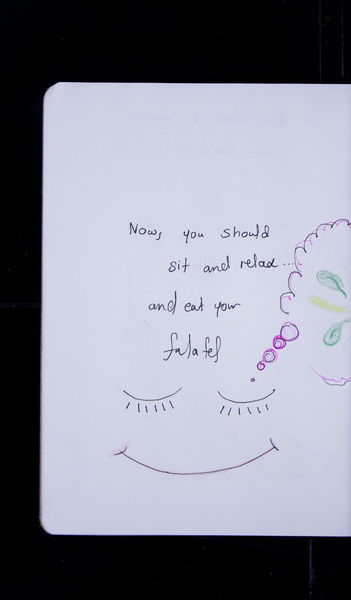 Now, you should
sit and relax...
and eat your
falafel